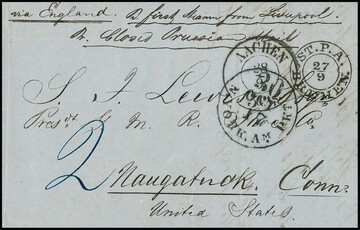 via England. p first Steamer from Liverpool.
Pr Closed Prussian Mail
AACHEN
ST. P. A.
27
9
BREMEN.
30
N. YORK. AM. PKT.
S. J. Lew
Prest G. M. R. Co,
2
Naugatuck. Conn:
United States.